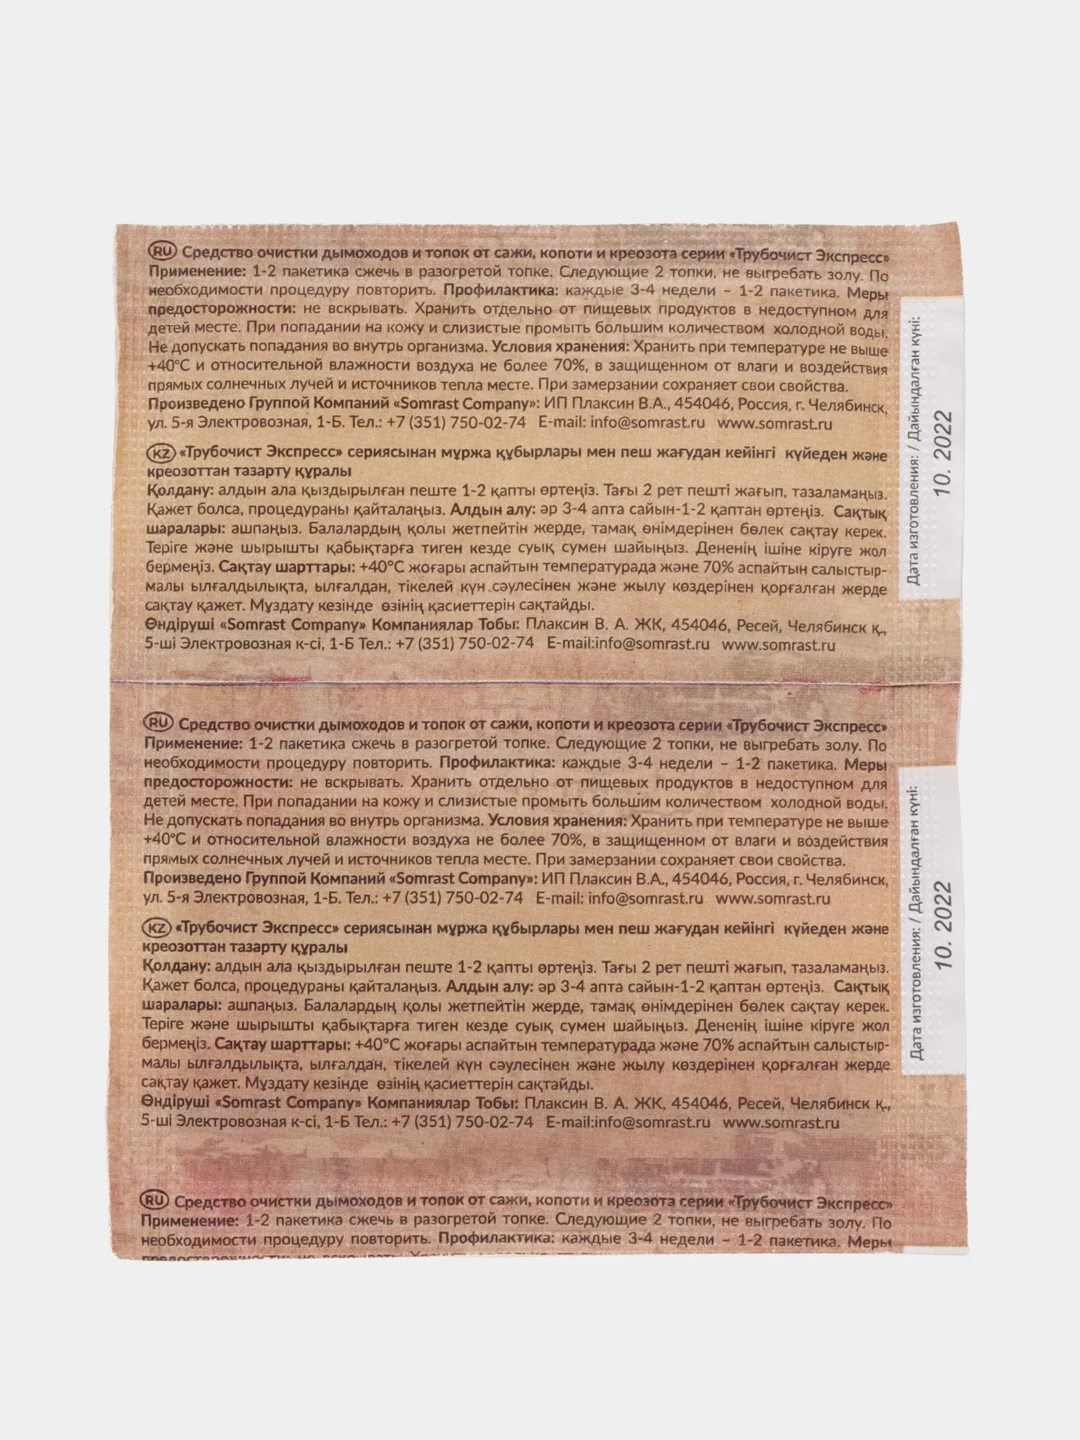 RU Средство очистки дымоходов и топок от сажи, копоти и креозота серии «Трубочист Экспресс»
Применение: 1-2 пакетика сжечь в разогретой топке. Следующие 2 топки, не выгребать золу. По
необходимости процедуру повторить. Профилактика: каждые 3-4 недели – 1-2 пакетика. Меры
предосторожности: не вскрывать. Хранить отдельно от пищевых продуктов в недоступном для
детей месте. При попадании на кожу и слизистые промыть большим количеством холодной воды.
Не допускать попадания во внутрь организма. Условия хранения: Хранить при температуре не выше
+40°С и относительной влажности воздуха не более 70%, в защищенном от влаги и воздействия
прямых солнечных лучей и источников тепла месте. При замерзании сохраняет свои свойства.
Произведено Группой Компаний «Somrast Company»: ИП Плаксин В.А., 454046, Россия, г. Челябинск,
ул. 5-я Электровозная, 1-Б. Тел.: +7 (351) 750-02-74 E-mail: info@somrast.ru www.somrast.ru
KZ «Трубочист Экспресс» сериясынан мұржа құбырлары мен пеш жағудан кейінгі күйеден және
креозоттан тазарту құралы
Қолдану: алдын ала қыздырылған пеште 1-2 қапты өртеңіз. Тағы 2 рет пешті жағып, тазаламаңыз.
Қажет болса, процедураны қайталаңыз. Алдын алу: әр 3-4 апта сайын-1-2 қаптан өртеңіз. Сақтық
шаралары: ашпаңыз. Балалардың қолы жетпейтін жерде, тамақ өнімдерінен бөлек сақтау керек.
Теріге және шырышты қабықтарға тиген кезде суық сумен шайыңыз. Дененің ішіне кіруге жол
бермеңіз. Сақтау шарттары: +40°С жоғары аспайтын температурада және 70% аспайтын салыстыр-
малы ылғалдылықта, ылғалдан, тікелей күн сәулесінен және жылу көздерінен қорғалған жерде
сақтау қажет. Мұздату кезінде өзінің қасиеттерін сақтайды.
Өндіруші «Somrast Company» Компаниялар Тобы: Плаксин В. А. ЖК, 454046, Ресей, Челябинск қ.,
5-ші Электровозная к-сі, 1-Б Тел.: +7 (351) 750-02-74 E-mail:info@somrast.ru www.somrast.ru
Дата изготовления: / Дайындалған күні:
10. 2022
RU Средство очистки дымоходов и топок от сажи, копоти и креозота серии «Трубочист Экспресс»
Применение: 1-2 пакетика сжечь в разогретой топке. Следующие 2 топки, не выгребать золу. По
необходимости процедуру повторить. Профилактика: каждые 3-4 недели – 1-2 пакетика. Меры
предосторожности: не вскрывать. Хранить отдельно от пищевых продуктов в недоступном для
детей месте. При попадании на кожу и слизистые промыть большим количеством холодной воды.
Не допускать попадания во внутрь организма. Условия хранения: Хранить при температуре не выше
+40°С и относительной влажности воздуха не более 70%, в защищенном от влаги и воздействия
прямых солнечных лучей и источников тепла месте. При замерзании сохраняет свои свойства.
Произведено Группой Компаний «Somrast Company»: ИП Плаксин В.А., 454046, Россия, г. Челябинск,
ул. 5-я Электровозная, 1-Б. Тел.: +7 (351) 750-02-74 E-mail: info@somrast.ru www.somrast.ru
KZ «Трубочист Экспресс» сериясынан мұржа құбырлары мен пеш жағудан кейінгі күйеден және
креозоттан тазарту құралы
Қолдану: алдын ала қыздырылған пеште 1-2 қапты өртеңіз. Тағы 2 рет пешті жағып, тазаламаңыз.
Қажет болса, процедураны қайталаңыз. Алдын алу: әр 3-4 апта сайын-1-2 қаптан өртеңіз. Сақтық
шаралары: ашпаңыз. Балалардың қолы жетпейтін жерде, тамақ өнімдерінен бөлек сақтау керек.
Теріге және шырышты қабықтарға тиген кезде суық сумен шайыңыз. Дененің ішіне кіруге жол
бермеңіз. Сақтау шарттары: +40°С жоғары аспайтын температурада және 70% аспайтын салыстыр-
малы ылғалдылықта, ылғалдан, тікелей күн сәулесінен және жылу көздерінен қорғалған жерде
сақтау қажет. Мұздату кезінде өзінің қасиеттерін сақтайды.
Өндіруші «Somrast Company» Компаниялар Тобы: Плаксин В. А. ЖК, 454046, Ресей, Челябинск қ.,
5-ші Электровозная к-сі, 1-Б Тел.: +7 (351) 750-02-74 E-mail:info@somrast.ru www.somrast.ru
Дата изготовления: / Дайындалған күні:
10. 2022
RU Средство очистки дымоходов и топок от сажи, копоти и креозота серии «Трубочист Экспресс»
Применение: 1-2 пакетика сжечь в разогретой топке. Следующие 2 топки, не выгребать золу. По
необходимости процедуру повторить. Профилактика: каждые 3-4 недели – 1-2 пакетика. Меры